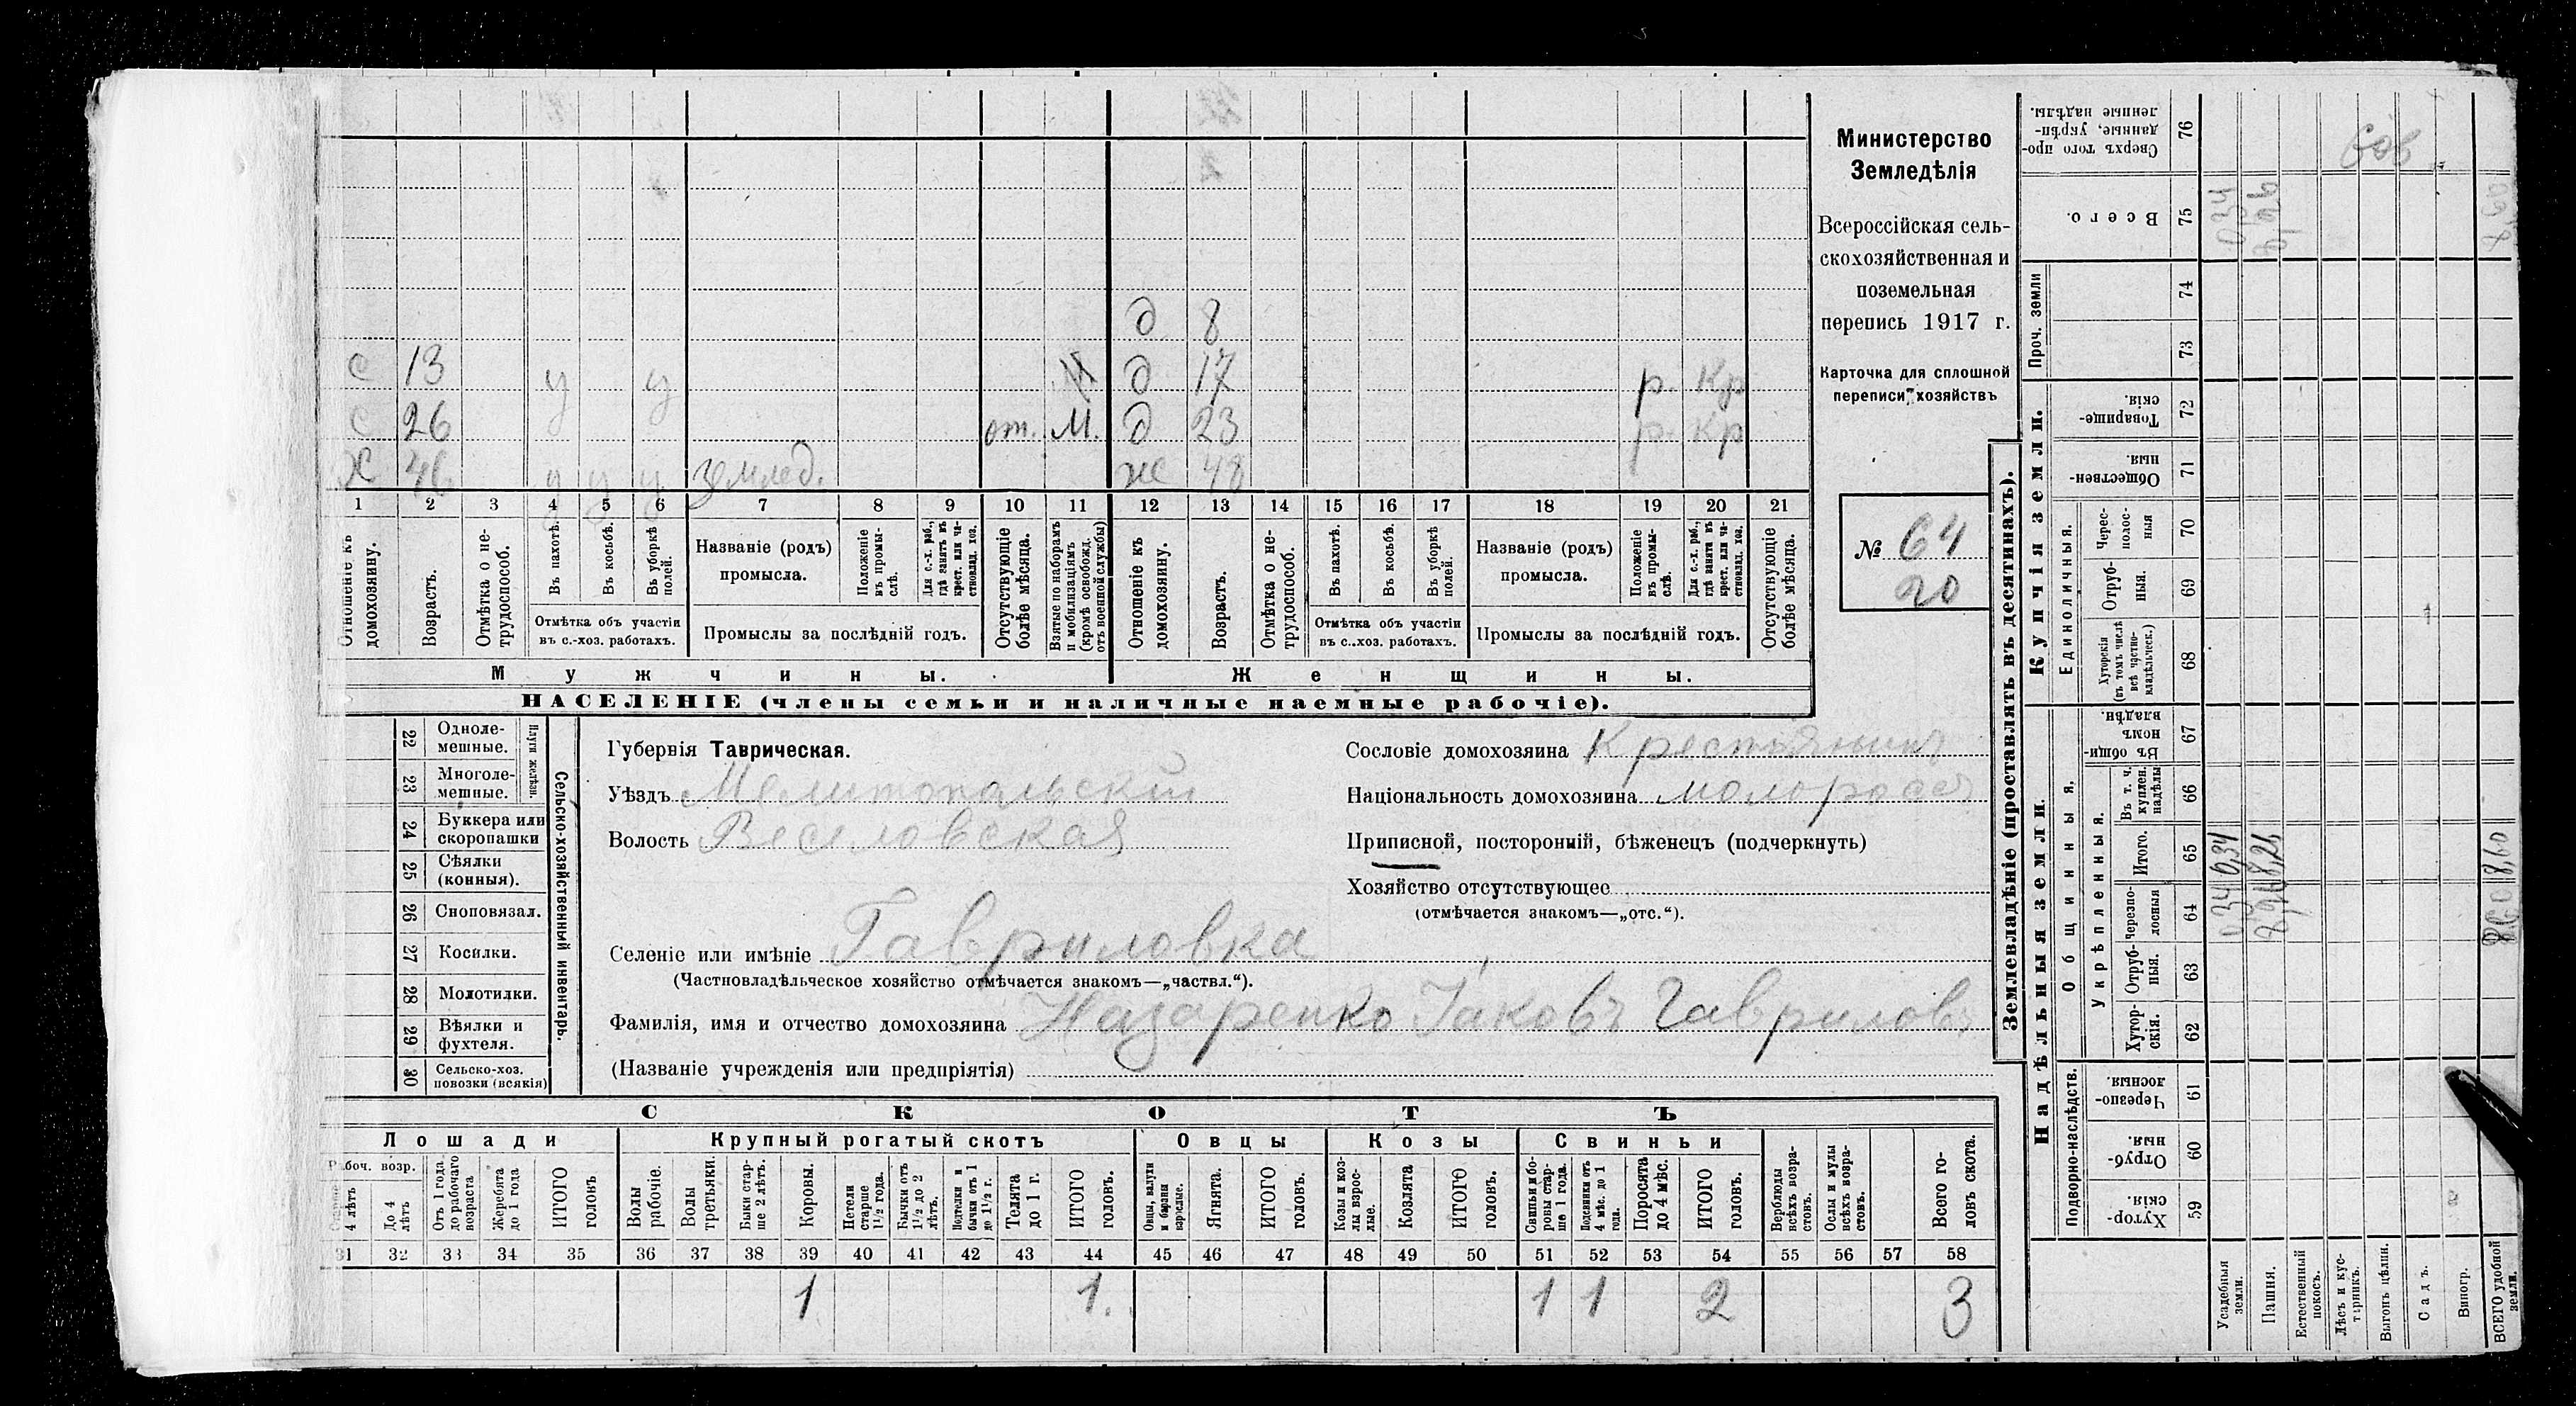 Министерство
Земледѣлія
Всероссійская сель-
скохозяйственная и
поземельная
перепись 1917 г.
Карточка для сплошной
переписи хозяйствъ
№ 64
20
д 8
с 13 у у М д 17 р. Кр
с 26 от. М. д 23 р. кр
Х 46 у у у землед. ж 48
1 2 3 4 5 6 7 8 9 10 11 12 13 14 15 16 17 18 19 20 21
Отношеніе къ домохозяину.
Возрастъ.
Отмѣтка о не-трудоспособ.
Въ пахотѣ.
Въ косьбѣ.
Въ уборкѣ полей.
Отмѣтка объ участіи въ с.-хоз. работахъ.
Названіе (родъ) промысла.
Положеніе въ промы-слѣ.
Для с.-х. раб., гдѣ занятъ въ крест. или ча-стновлад. хоз.
Промыслы за послѣдній годъ.
Отсутствующіе болѣе мѣсяца.
Взятые по наборамъ и мобилизаціямъ (кромѣ освобожд. отъ военной службы)
Отношеніе къ домохозяину.
Возрастъ.
Отмѣтка о не-трудоспособ.
Въ пахотѣ.
Въ косьбѣ.
Въ уборкѣ полей.
Отмѣтка объ участіи въ с.-хоз. работахъ.
Названіе (родъ) промысла.
Положеніе въ промы-слѣ.
Для с.-х. раб., гдѣ занята въ крест. или ча-стновлад. хоз.
Промыслы за послѣдній годъ.
Отсутствующіе болѣе мѣсяца.
Мужчины. Женщины.
НАСЕЛЕНІЕ (члены семьи и наличные наемные рабочіе).
22 Одноле-мешные.
23 Многоле-мешные.
Плуги желѣзн.
24 Буккера или скоропашки
25 Сѣялки (конныя).
26 Сноповязал.
27 Косилки.
28 Молотилки.
29 Вѣялки и фухтеля.
30 Сельско-хоз. повозки (всякія)
Сельско-хозяйственный инвентарь.
Губернія Таврическая.
Уѣздъ Мелитопальскій
Волость Веселовская
Селеніе или имѣніе Гавриловка
(Частновладѣльческое хозяйство отмѣчается знакомъ—„частвл.“).
Фамилія, имя и отчество домохозяина Назаренко Іаковъ Гаврилов
(Названіе учрежденія или предпріятія)
Сословіе домохозяина Крестьянинъ
Національность домохозяина малоросс
Приписной, посторонній, бѣженецъ (подчеркнуть)
Хозяйство отсутствующее
(отмѣчается знакомъ—„отс.“).
СКОТЪ
Лошади
Рабоч. возр.
4 лѣтъ
До 4 лѣтъ
Отъ 1 года до рабочаго возраста
Жеребята до 1 года
ИТОГО головъ
Крупный рогатый скотъ
Волы рабочіе.
Волы третьяки.
Быки стар-ше 2 лѣтъ.
Коровы.
Нетели старше 1½ года.
Бычки отъ 1½ до 2 лѣтъ.
Подтелки и бычки отъ 1 до 1½ г.
Телята до 1 г.
ИТОГО головъ.
Овцы
Овцы, валухи и бараны взрослые.
Ягнята.
ИТОГО головъ.
Козы
Козы и коз-лы взрос-лые.
Козлята
ИТОГО головъ.
Свиньи
Свиньи и бо-ровы стар-ше 1 года.
Подсвинки отъ 4 мѣс. до 1 года.
Поросята до 4 мѣс.
ИТОГО головъ.
Верблюды всѣхъ возра-стовъ.
Ослы и мулы всѣхъ возра-стовъ.
Всего го-ловъ скота.
31 32 33 34 35 36 37 38 39 40 41 42 43 44 45 46 47 48 49 50 51 52 53 54 55 56 57 58
1 1. 1 1 2 3
Землевладѣніе (проставлять въ десятинахъ).
Надѣльныя земли.
Подворно-наслѣдств.
59 Хутор-скія.
60 Отруб-ныя.
61 Черезпо-лосныя.
Общинныя.
Укрѣпленныя.
62 Хутор-скія.
63 Отруб-ныя.
64 Черезпо-лосныя
65 Итого.
66 Въ т. ч. куплен. надѣлы
67 Въ общи-нномъ владѣн.
Купчія земли.
Единоличныя.
68 Хуторскія (въ томъ числѣ всѣ частно-владѣльческ.)
69 Отруб-ныя.
70 Черес-полос-ныя
71 Обществен-ныя.
72 Товарище-скія.
Проч. земли
73
74
75 Всего.
76 Сверхъ того про-данные, укрѣп-ленные надѣлы.
Усадебныя земли. 0,34 0,34 0,34
Пашня. 8,26
Естественный покосъ.
Лѣсъ и кус-тарникъ.
Выгонъ цѣлин.
Садъ.
Виногр.
ВСЕГО удобной земли. 8,60 8,60 8,60